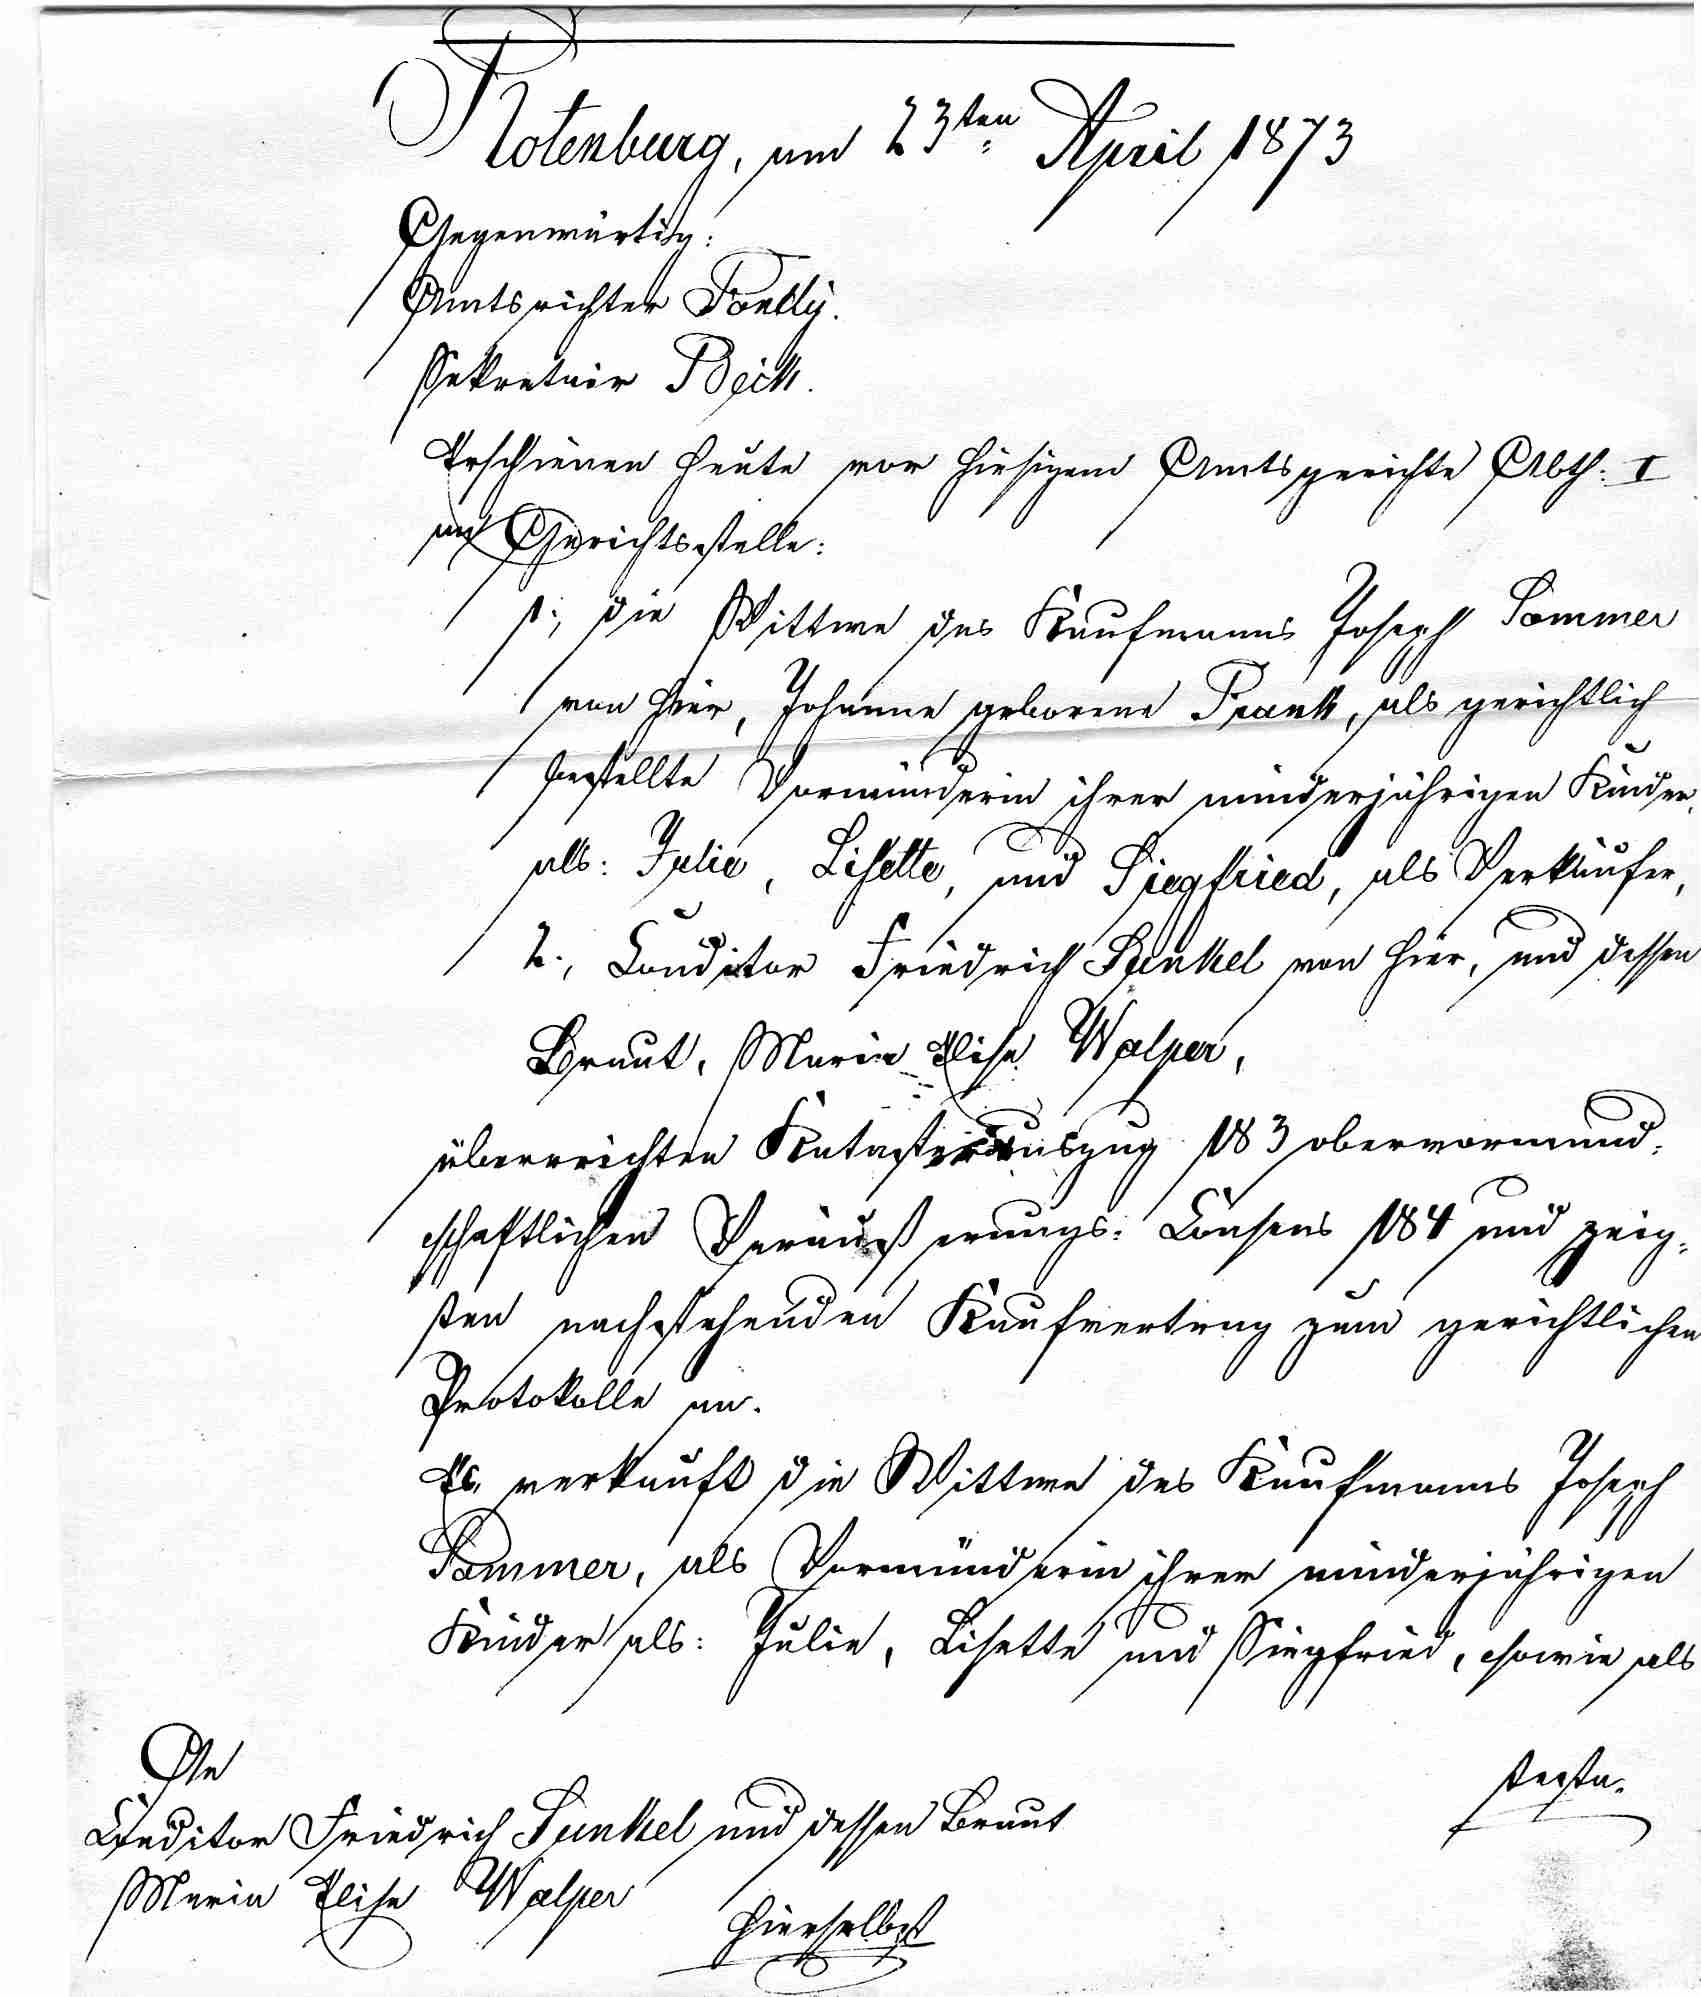 Rotenburg, am 23ten April 1873
Gegenwärtig:
Amtsrichter
Sekretair Beck.
Erschienen heute vor hiesigem Amtsgerichte Abth: I
an Gerichtsstelle:
1., die Wittwe des Kaufmanns Joseph Sommer
von hier, Johanne geborene Plank, als gerichtlich
bestellte Vormünderin ihrer minderjährigen Kinder,
als: Julie, Lisette, und Siegfried, als Verkäufer,
2., Conditor Friedrich Sunkel von hier, und dessen
Braut, Maria Elise Walper,
überreichten Katasterauszug 183 obervormund-
schaftlichen Veräußerungs-Consens 184 und zeig-
ten nachstehenden Kaufvertrag zum gerichtlichen
Protokolle an.
Es verkauft die Wittwe des Kaufmanns Joseph
Sommer, als Vormünderin ihrer minderjährigen
Kinder als: Julie, Lisette und Siegfried, sowie als
An
testa-
Conditor Friedrich Sunkel und dessen Braut
Maria Elise Walper
hierselbst